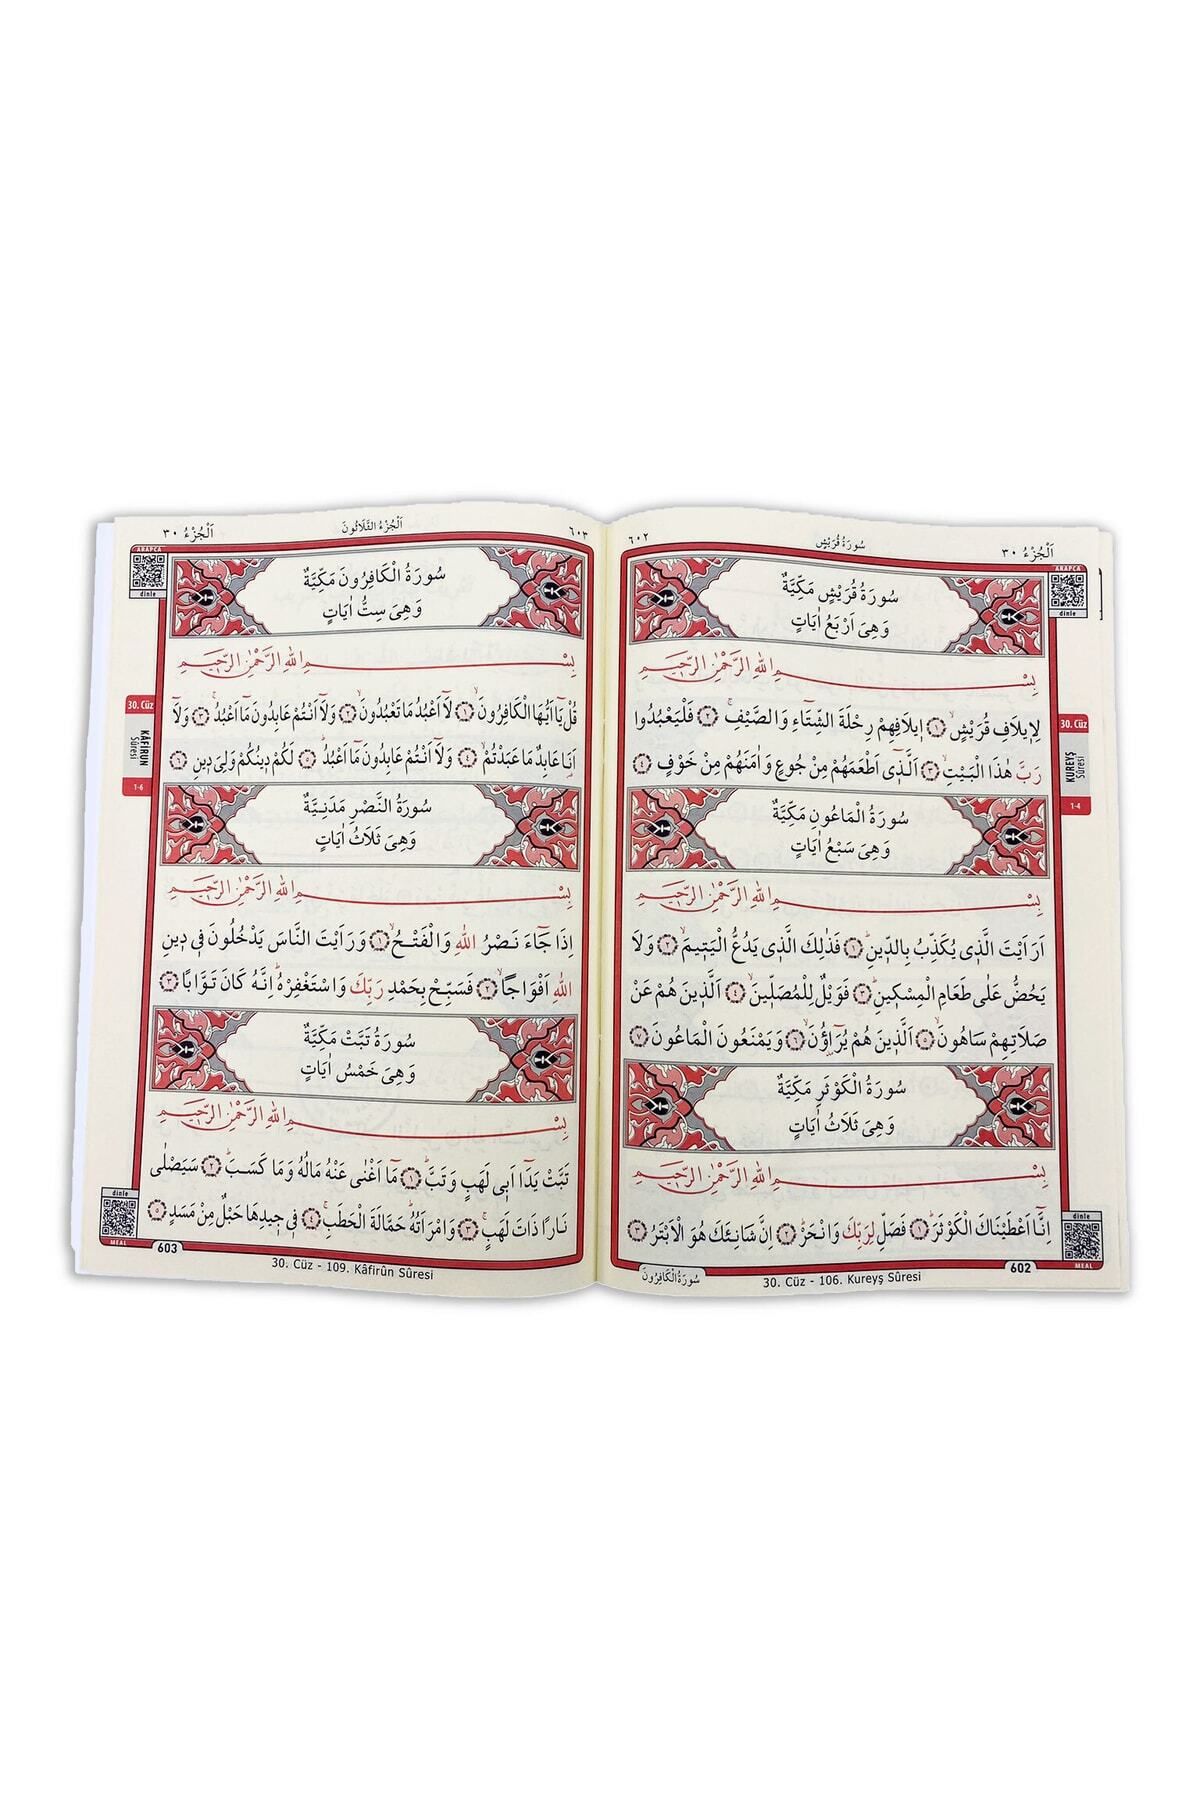 اَلْجُزْءُ ٣٠
سُورَةُ قُرَيْشٍ
٦٠٢
ARAPÇA
dinle
سُورَةُ قُرَيْشٍ مَكِّيَّةٌ
وَهِىَ اَرْبَعُ اٰيَاتٍ
بِسْمِ اللهِ الرَّحْمٰنِ الرَّحِيمِ
لِاٖيلَافِ قُرَيْشٍۙ ﴿١﴾ اٖيلَافِهِمْ رِحْلَةَ الشِّتَٓاءِ وَالصَّيْفِۚ ﴿٢﴾ فَلْيَعْبُدُوا
رَبَّ هٰذَا الْبَيْتِۙ ﴿٣﴾ اَلَّذٖٓى اَطْعَمَهُمْ مِنْ جُوعٍ وَاٰمَنَهُمْ مِنْ خَوْفٍ ﴿٤﴾
30. Cüz
KUREYŞ
Sûresi
1-4
سُورَةُ الْمَاعُونِ مَكِّيَّةٌ
وَهِىَ سَبْعُ اٰيَاتٍ
بِسْمِ اللهِ الرَّحْمٰنِ الرَّحِيمِ
اَرَاَيْتَ الَّذٖى يُكَذِّبُ بِالدّٖينِؕ ﴿١﴾ فَذٰلِكَ الَّذٖى يَدُعُّ الْيَتٖيمَۙ ﴿٢﴾ وَلَا
يَحُضُّ عَلٰى طَعَامِ الْمِسْكٖينِؕ ﴿٣﴾ فَوَيْلٌ لِلْمُصَلّٖينَۙ ﴿٤﴾ اَلَّذٖينَ هُمْ عَنْ
صَلَاتِهِمْ سَاهُونَۙ ﴿٥﴾ اَلَّذٖينَ هُمْ يُرَٓاؤُنَۙ ﴿٦﴾ وَيَمْنَعُونَ الْمَاعُونَ ﴿٧﴾
سُورَةُ الْكَوْثَرِ مَكِّيَّةٌ
وَهِىَ ثَلَاثُ اٰيَاتٍ
بِسْمِ اللهِ الرَّحْمٰنِ الرَّحِيمِ
اِنَّٓا اَعْطَيْنَاكَ الْكَوْثَرَؕ ﴿١﴾ فَصَلِّ لِرَبِّكَ وَانْحَرْؕ ﴿٢﴾ اِنَّ شَانِئَكَ هُوَ الْاَبْتَرُ ﴿٣﴾
dinle
MEAL
602
30. Cüz - 106. Kureyş Sûresi
سُورَةُ الْكَافِرُونَ
٦٠٣
اَلْجُزْءُ الثَّلَاثُونَ
اَلْجُزْءُ ٣٠
ARAPÇA
dinle
سُورَةُ الْكَافِرُونَ مَكِّيَّةٌ
وَهِىَ سِتُّ اٰيَاتٍ
بِسْمِ اللهِ الرَّحْمٰنِ الرَّحِيمِ
قُلْ يَٓا اَيُّهَا الْكَافِرُونَۙ ﴿١﴾ لَٓا اَعْبُدُ مَا تَعْبُدُونَۙ ﴿٢﴾ وَلَٓا اَنْتُمْ عَابِدُونَ مَٓا اَعْبُدُۚ ﴿٣﴾ وَلَٓا
اَنَا۬ عَابِدٌ مَا عَبَدْتُمْۙ ﴿٤﴾ وَلَٓا اَنْتُمْ عَابِدُونَ مَٓا اَعْبُدُؕ ﴿٥﴾ لَكُمْ دٖينُكُمْ وَلِىَ دٖينِ ﴿٦﴾
30. Cüz
KÂFİRUN
Sûresi
1-6
سُورَةُ النَّصْرِ مَدَنِيَّةٌ
وَهِىَ ثَلَاثُ اٰيَاتٍ
بِسْمِ اللهِ الرَّحْمٰنِ الرَّحِيمِ
اِذَا جَٓاءَ نَصْرُ اللهِ وَالْفَتْحُۙ ﴿١﴾ وَرَاَيْتَ النَّاسَ يَدْخُلُونَ فٖى دٖينِ
اللهِ اَفْوَاجًاۙ ﴿٢﴾ فَسَبِّحْ بِحَمْدِ رَبِّكَ وَاسْتَغْفِرْهُؕ اِنَّهُ كَانَ تَوَّابًا ﴿٣﴾
سُورَةُ تَبَّتْ مَكِّيَّةٌ
وَهِىَ خَمْسُ اٰيَاتٍ
بِسْمِ اللهِ الرَّحْمٰنِ الرَّحِيمِ
تَبَّتْ يَدَٓا اَبٖى لَهَبٍ وَتَبَّؕ ﴿١﴾ مَٓا اَغْنٰى عَنْهُ مَالُهُ وَمَا كَسَبَؕ ﴿٢﴾ سَيَصْلٰى
نَارًا ذَاتَ لَهَبٍۚ ﴿٣﴾ وَامْرَاَتُهُؕ حَمَّالَةَ الْحَطَبِۚ ﴿٤﴾ فٖى جٖيدِهَا حَبْلٌ مِنْ مَسَدٍ ﴿٥﴾
dinle
MEAL
603
30. Cüz - 109. Kâfirûn Sûresi